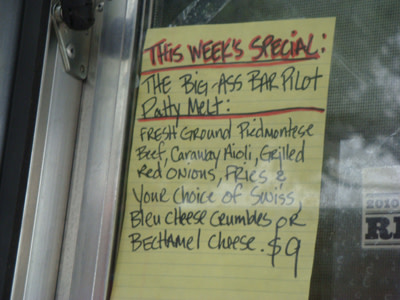 THIS WEEK'S SPECIAL:
THE BIG-ASS BAR PILOT
Patty MELT:
FRESH GROUND PIEDMONTESE
BEEF, CARAWAY AIOLI, GRILLED
RED ONIONS, FRIES &
YOUR CHOICE OF SWISS,
BLEU CHEESE CRUMBLES OR
BECHAMEL CHEESE. $9
2010